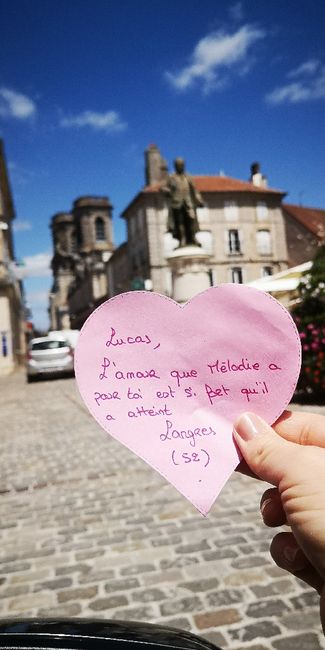 Lucas,
L'amour que Mélodie a
pour toi est si fort qu'il
a atteint
Langres
(52)